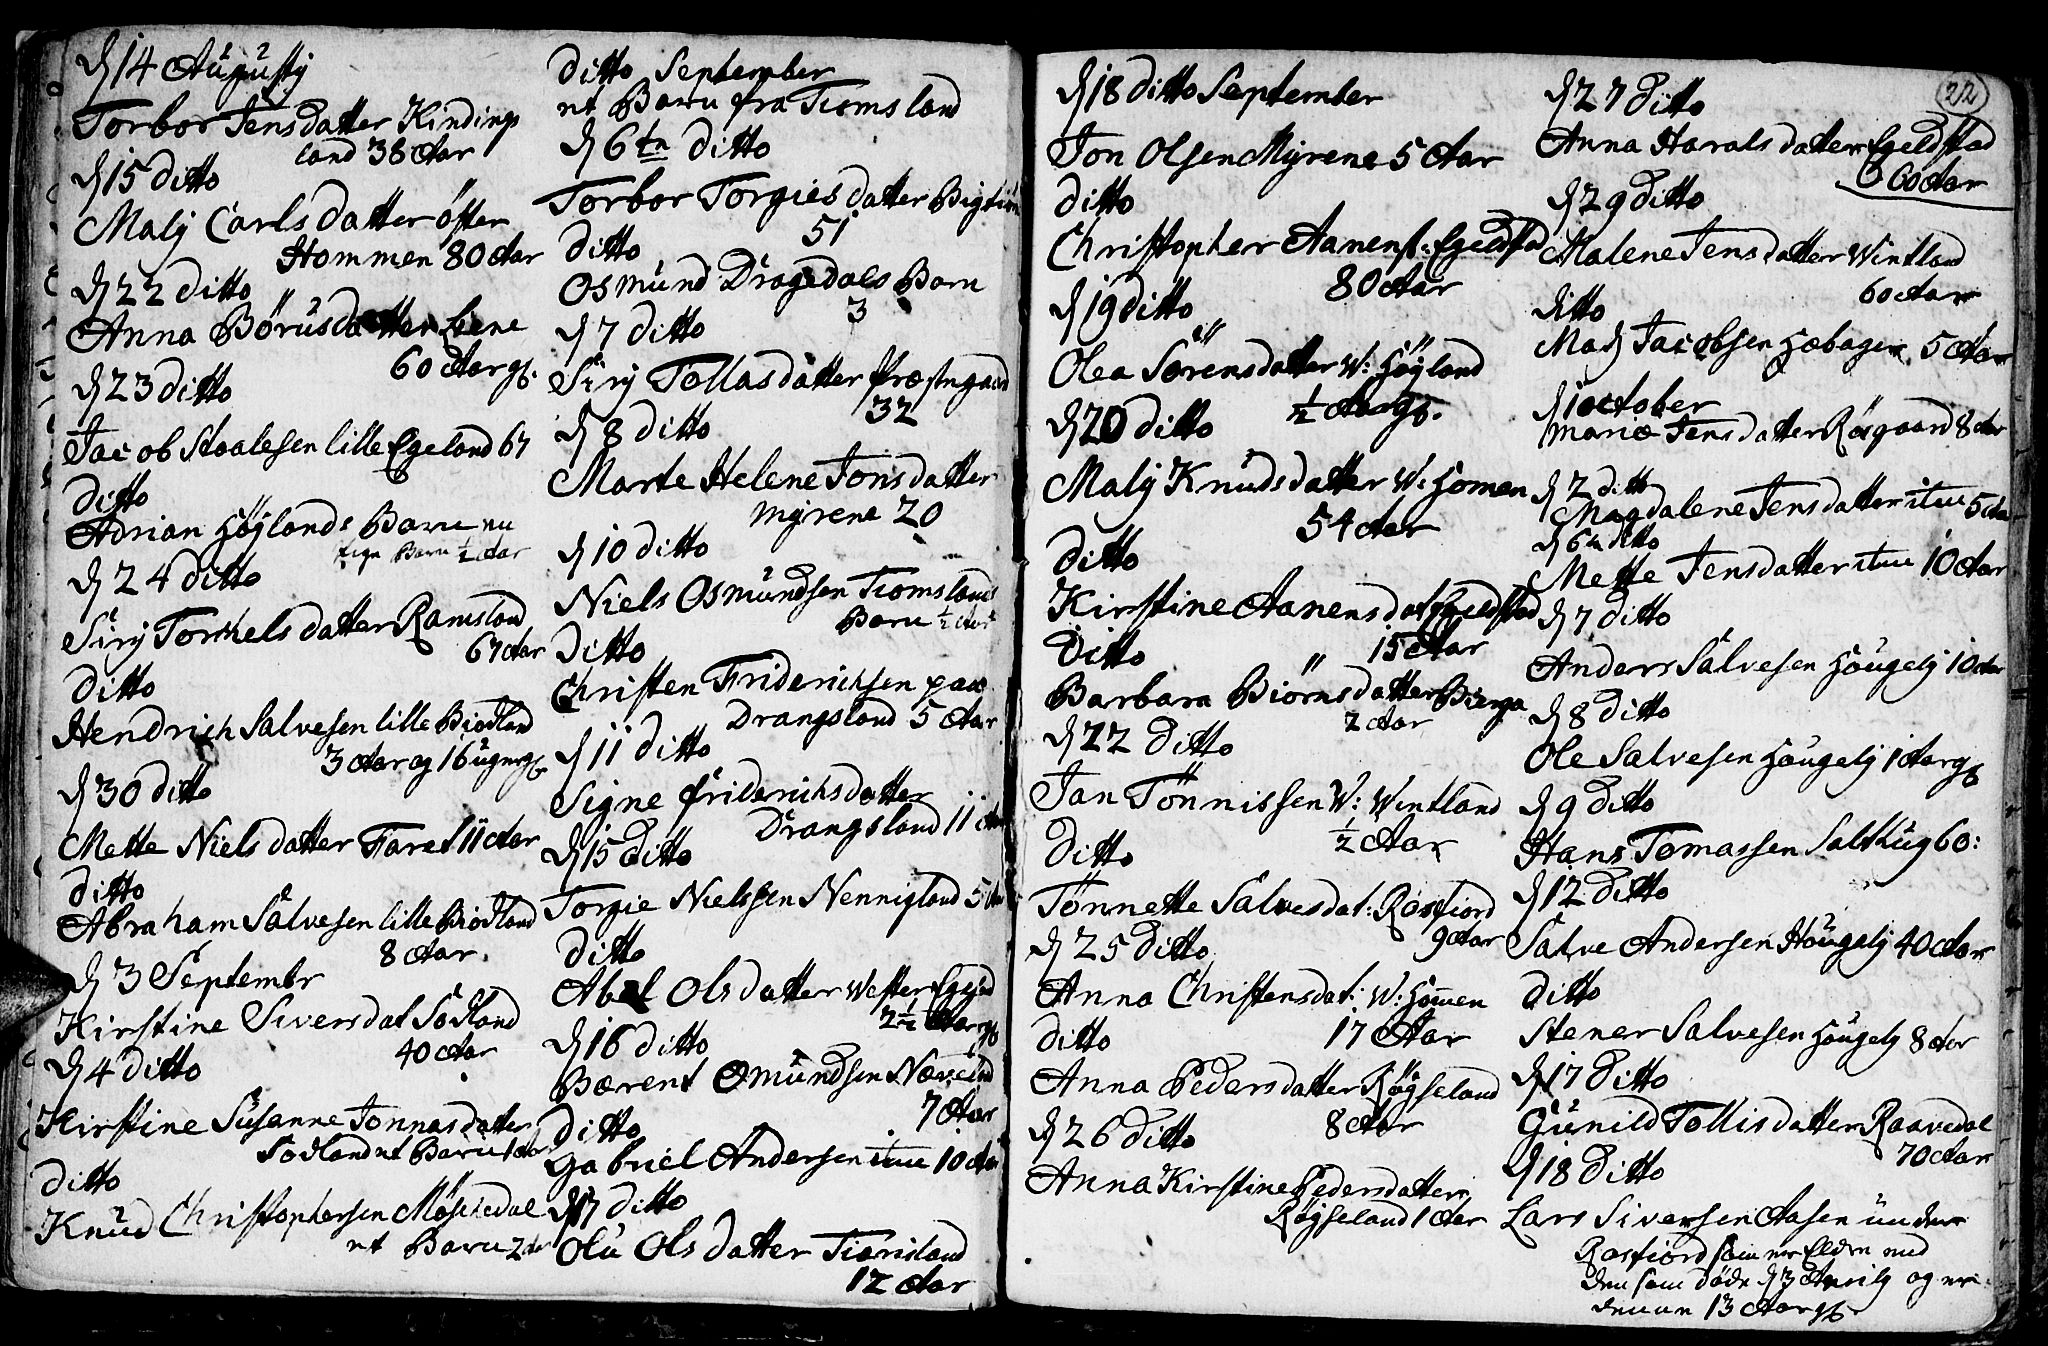 d 14 Augustij
Torbor Jensdatter Kindings
land 38 Aar
d 15 ditto
Malj Carlsdatter öster
Hommen 80 Aar
d 22 ditto
Anna Börusdatter Leene
60 Aar g.
d 23 ditto
Jacob Staalesen lille Egeland 67
ditto
Adrian Höjlands Barn
Barn ½ Aar
d 24 ditto
Sirj Torkelsdatter Ramsland
67 Aar
ditto
Hendrich Salvesen lille Biodland
3 Aar og 16 uger g
d 30 ditto
Mette Nielsdatter Faret 11 Aar
ditto
Abraham Salvesen lille Biodland
8 Aar.
d 3 Septembr
Kirstine Siversdat Sodland
40 Aar
d 4 ditto
Kirstine Susanne Jonnasdatter
Sodland et Barn 1 Aar
ditto
Knud Christophersen Møskedal
et Barn 2 Aar
ditto September
et Barn fra Tiomsland
d 6tn ditto
Torbor Torgiesdatter
51
ditto
Osmund Dragedals Barn
3
d 7 ditto
Sirj Tollasdatter Præstngaard
32
d 8 ditto
Marte Helene Jonsdatter
Myrene 20
d 10 ditto
Niels Osmundsen Tiomslands
Barn ½ Aar
Ditto
Christen Friderichsen paa
Drangsland 5 Aar
d 11 ditto
Signe Friderichsdatter
Drangsland 11 Aar
d 15 ditto
Torgie Nielssen Nennigland 5 Aar
ditto
Abel Olsdatter Wester Egeland
2½ Aar g
d 16 ditto
Bærent Omundsen
7 Aar
ditto
Gabriel Andersen 10 Aar
d 17 ditto
Olu Olsdatter Tiomsland
12 Aar
22
d 18 ditto September
Jon Olsen Myrene 5 Aar
ditto
Christopherr Aanens: Egeldstad
80 Aar
d 19 ditto
Olea Sörensdatter W: Höjland
½ Aar g.
d 20 ditto
Malj Knudsdatter W: Homen
54 Aar
ditto
Kirstine Aanensdat Egeldstad
15 Aar
Ditto
Barbara Biörnsdatter Bierga
2 Aar
d 22 Ditto
Jan Tönnissen W: Wintland
½ Aar
Ditto
Tönnette Salvesdat: Rosfiord
9 Aar
d 25 Ditto
Anna Christensdat: W: Homen
17 Aar
ditto
Anna Pedersdatter Röjseland
8 Aar
d 26 ditto
Anna Kirstine Pedersdatter
Röjseland 1 Aar
d 27 Ditto
Anna Haralsdatter Egeldstad
60 Aar
d 29 ditto
Malene Jensdatter Wintland
60 Aar
ditto
Jacobsen Hæbager 5 Aar
d 1 october
Marie Jensdatter Røsgaard 8 Aar
d 2 ditto
Magdalene Jensdatter 5 Aar
d 6tn ditto
Mette Jensdatter 10 Aar
d 7 ditto
Anderr Salvesen Hougelj 10 Aar
d 8 ditto
Ole Salvesen Hougelj 1 Aar g
d 9 ditto
Hans Tomassen Salthug 60:
d 12 ditto
Salve Andersen Hougelj 40 Aar
ditto
Stener Salvesen Hougelj 8 Aar
d 17 Ditto
Gunild Tollisdatter Raavedal
70 Aar
d 18 Ditto
Lars Siversen Aasen under
Rosfiord som er Elder end
den som döde d 3 Aprilj og er
denne 13 Aar g